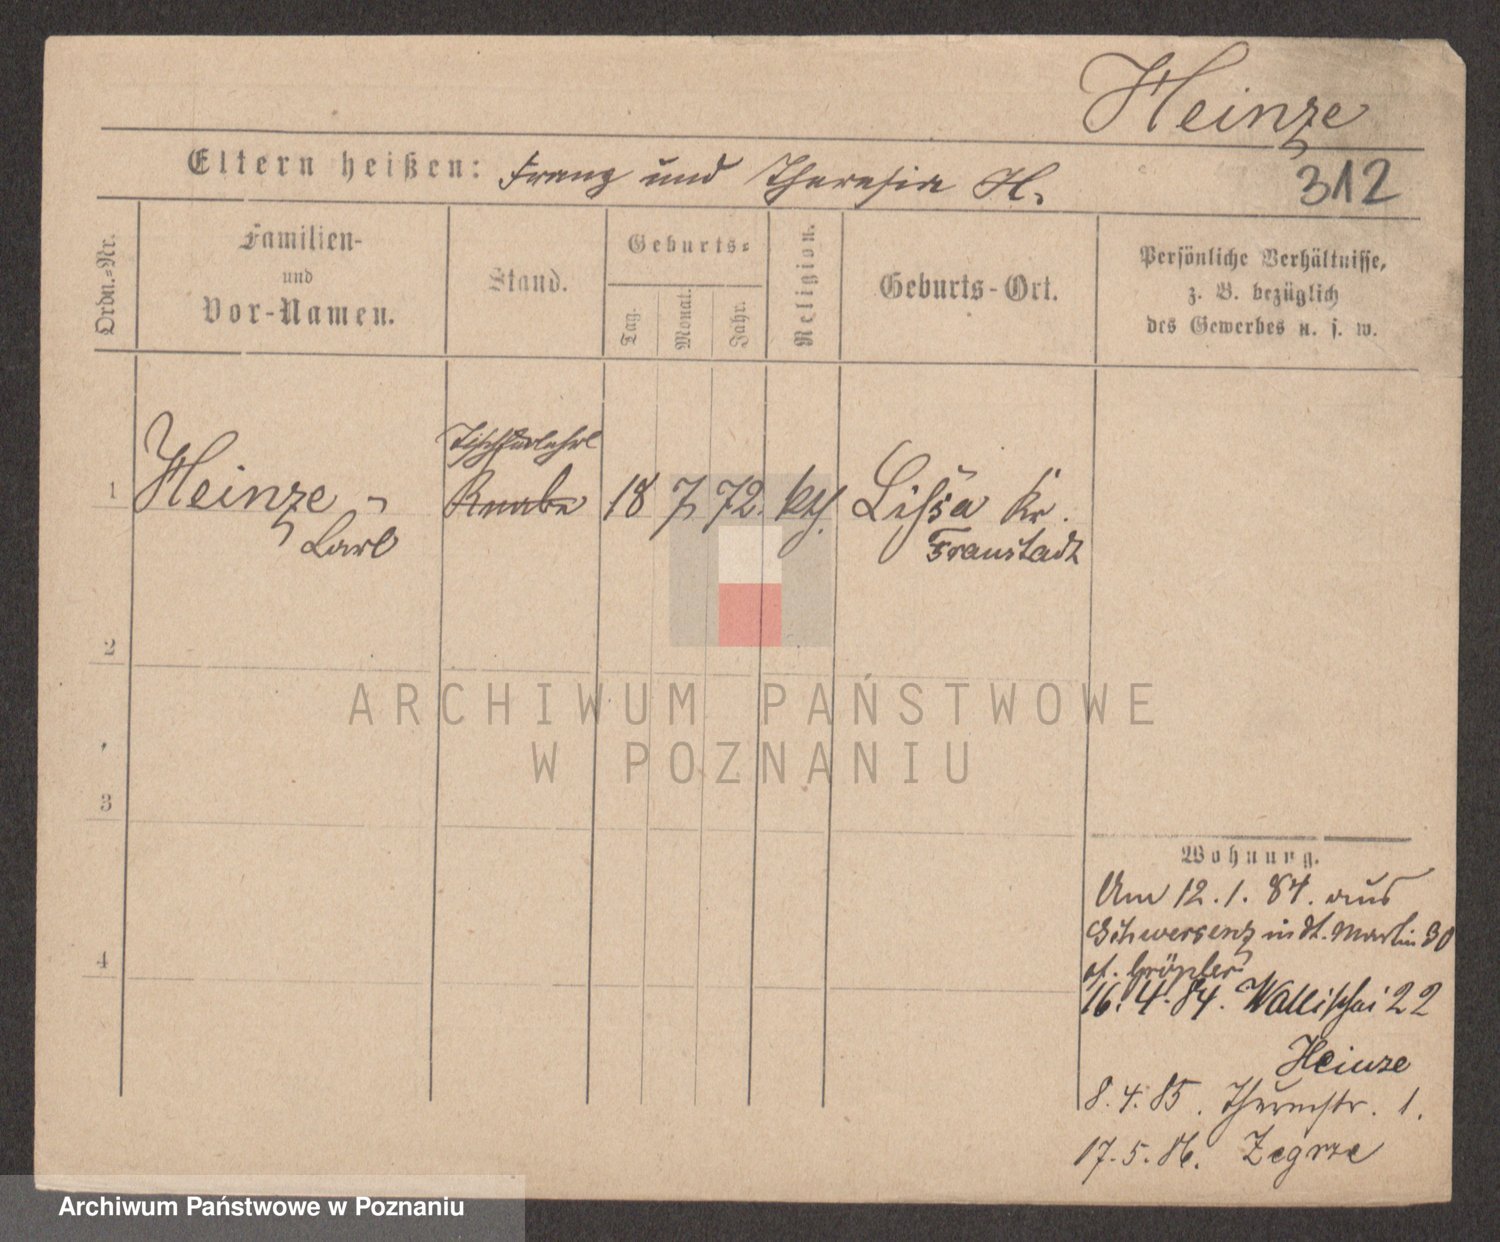 Heinze
Eltern heißen: Franz und Theresia H.
312
Ordn.=Nr.
Familien-
und
Vor-Namen.
Stand.
Geburts=
Tag.
Monat.
Jahr.
Religion.
Geburts-Ort.
Persönliche Verhältnisse,
z. B. bezüglich
des Gewerbes u. s. w.
Tischlerlehrl
1 Heinze Knabe 18 7 72. kth. Lissa Kr.
Carl Fraustadt
2
3
4
Wohnung.
Am 12. 1. 84. aus
Schwersenz in St. Martin 30
16. 4. 84. Wallischei 22
Heinze
8. 4. 85. Thurmstr. 1.
17. 5. 86. Zegrze
ARCHIWUM PAŃSTWOWE
W POZNANIU
Archiwum Państwowe w Poznaniu